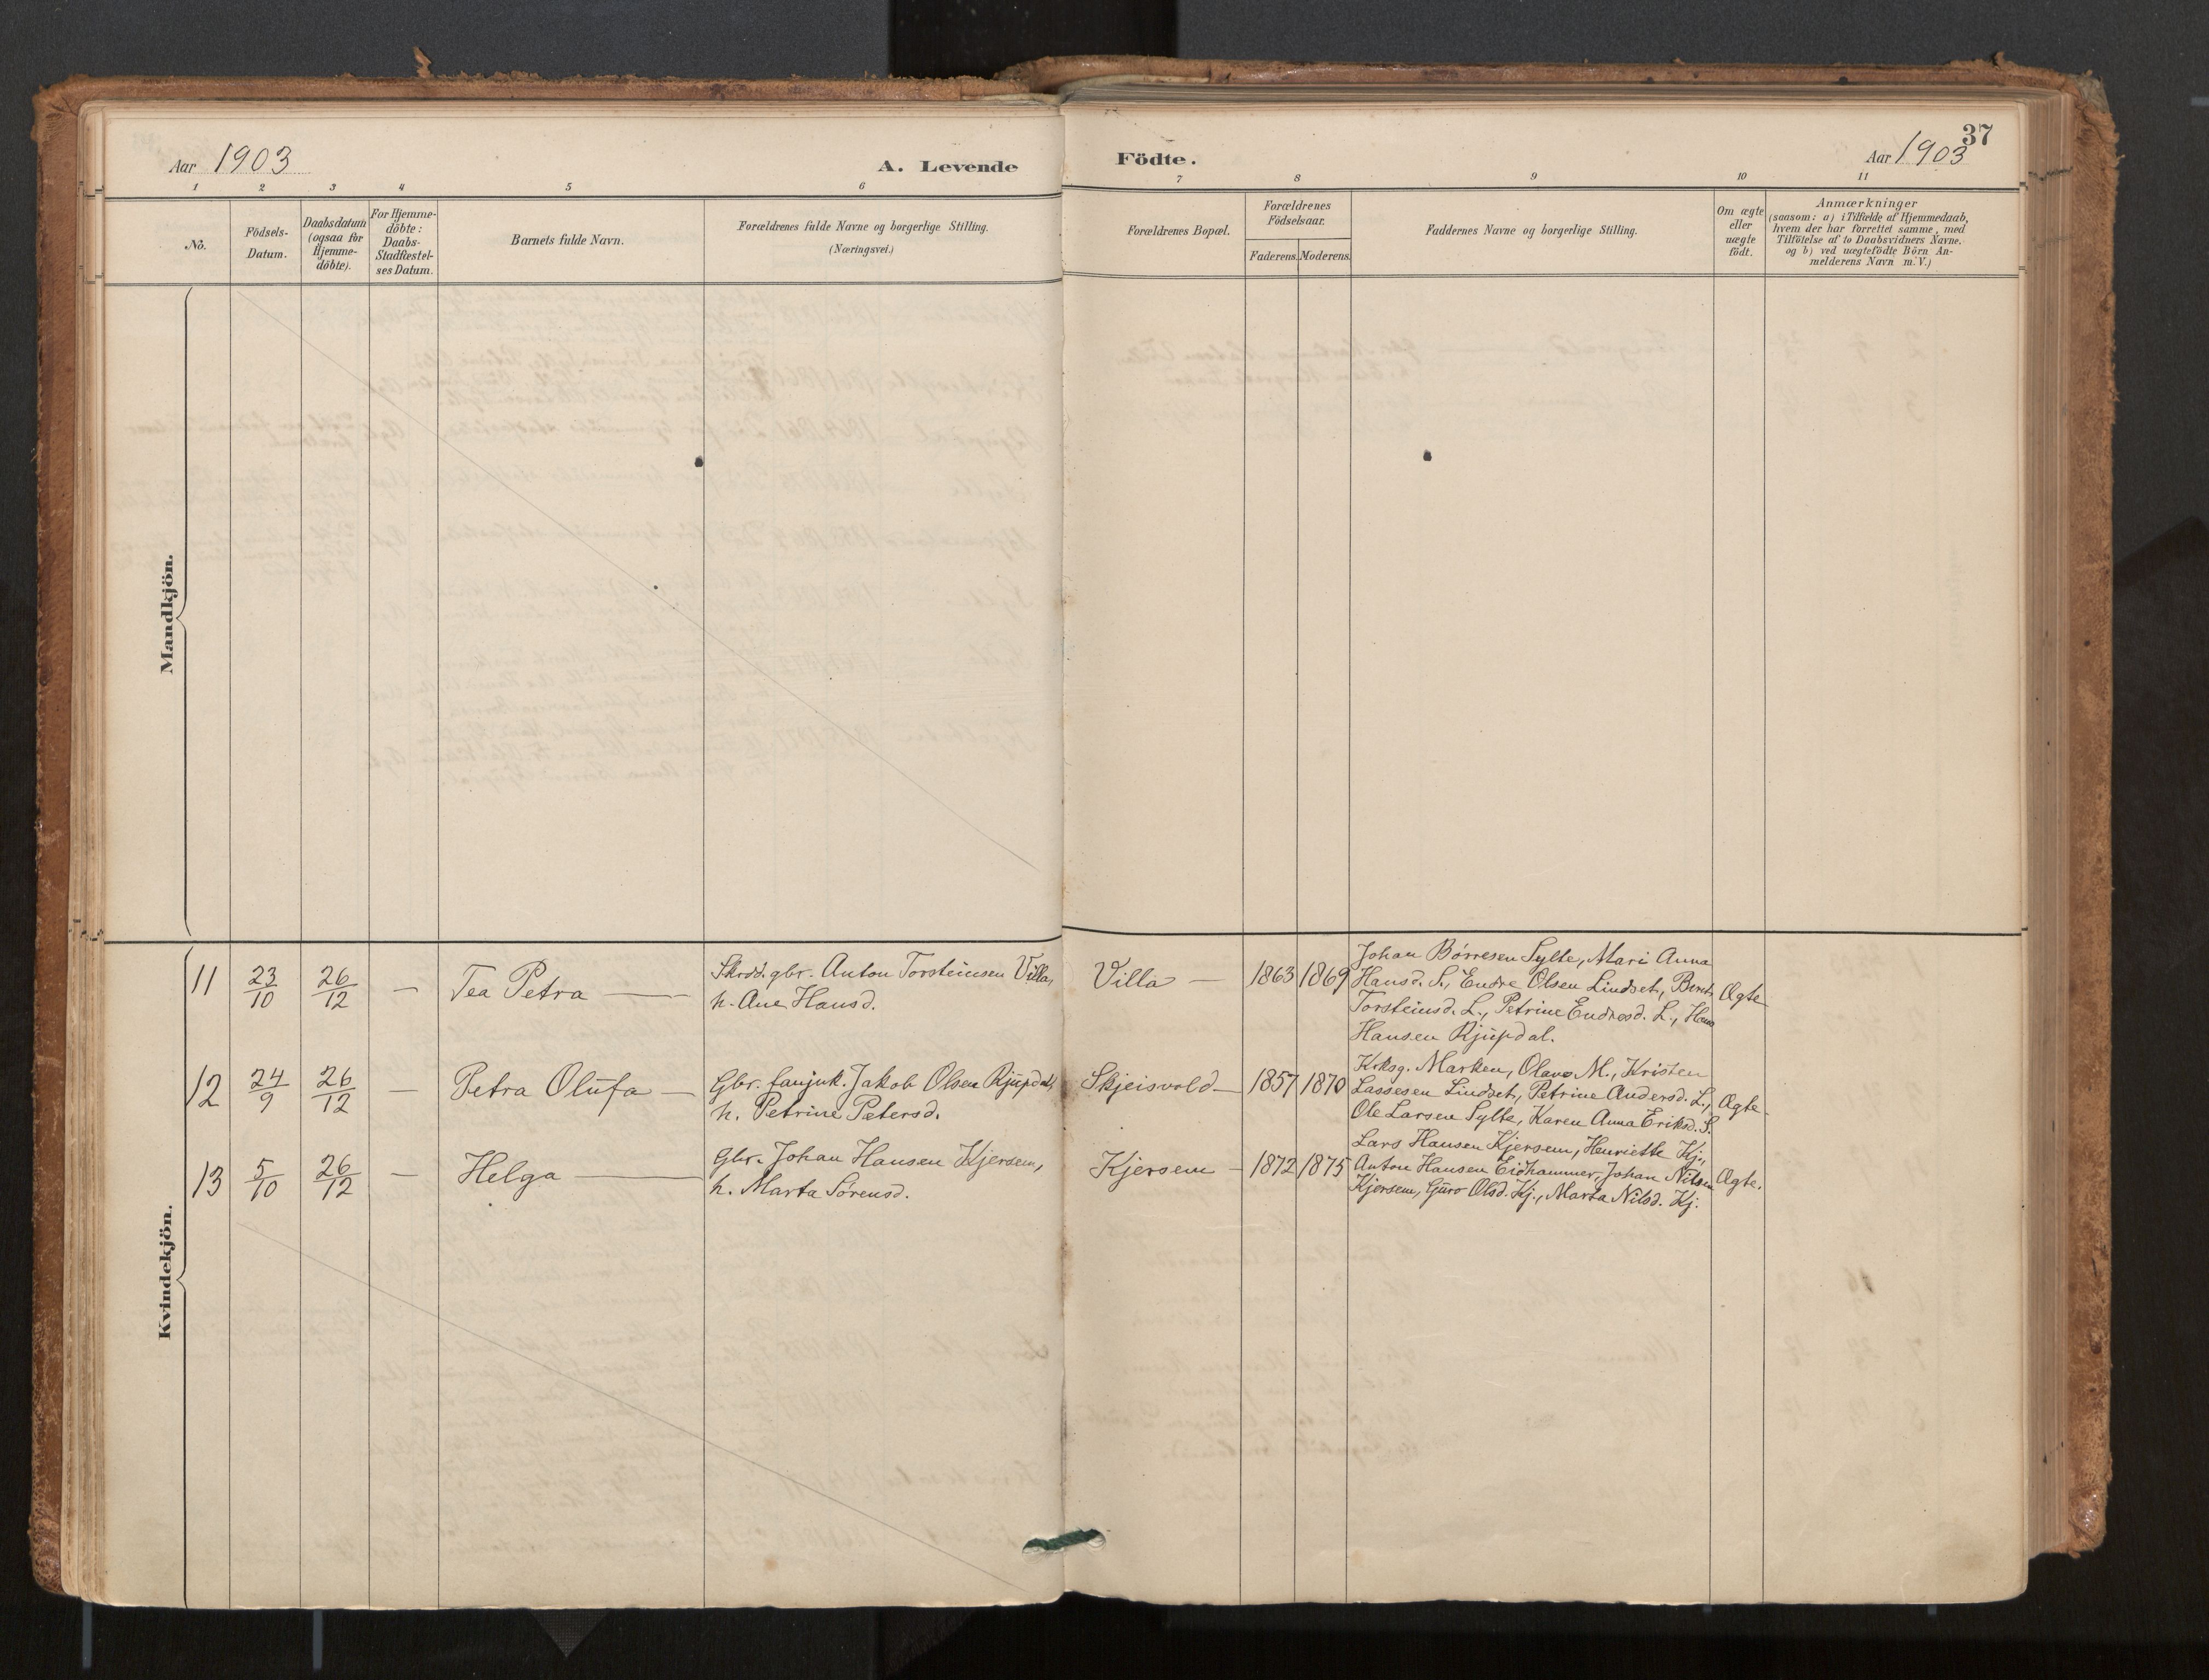 37
Aar 1903
A. Levende
Födte.
Aar 1903
1 2 3 4 5 6 7 8 9 10 11
No.
Födsels-
Datum.
Daabsdatum
(ogsaa for
Hjemme-
döbte).
For Hjemme-
döbte:
Daabs-
Stadfæstel-
ses Datum.
Barnets fulde Navn.
Forældrenes fulde Navne og borgerlige Stilling.
(Næringsvei.)
Forældrenes Bopæl.
Forældrenes
Födselsaar.
Faderens. Moderens.
Faddernes Navne og borgerlige Stilling.
Om ægte
eller
uægte
födt.
Anmærkninger
(saasom: a) i Tilfælde af Hjemmedaab,
hvem der har forrettet samme, med
Tilföielse af to Daabsvidners Navne.
og b) ved uægtefödte Börn An-
melderens Navn m. V.)
Mandkjön.
Kvindekjön.
11 23/10 26/12 — Tea Petra —
Skrdd. gbr. Anton Torsteinsen Villa,
h. Ane Hansd.
Villa — 1863 1869
Johan Børresen Sylte, Mari Anna
Hansd. S., Endre Olsen Lindset, Berit
Torsteinsd. L., Petrine Endresd. L., Hans
Hansen Rjupdal.
Ægte
12 24/9 26/12 — Petra Olufa —
Gbr. fanjuk. Jakob Olsen Rjupdal,
h. Petrine Petersd.
Skjeisvold — 1857 1870
Krksg. Marken, Olava M., Kristen
Lassesen Lindset, Petrine Andersd. L.,
Ole Larsen Sylte, Karen Anna Eriksd. S.
Ægte
13 5/10 26/12 — Helga —
Gbr. Johan Hansen Kjersem,
h. Marta Sørensd.
Kjersem — 1872 1875
Lars Hansen Kjersem, Henriette Kj.,
Anton Hansen Eidhammer, Johan Nilsen
Kjersem, Guro Olsd. Kj., Marta Nilsd. Kj.
Ægte.